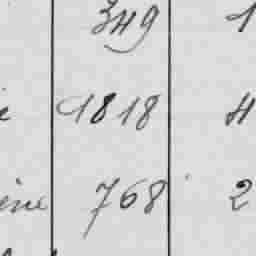 349 1
1818 4
768 2